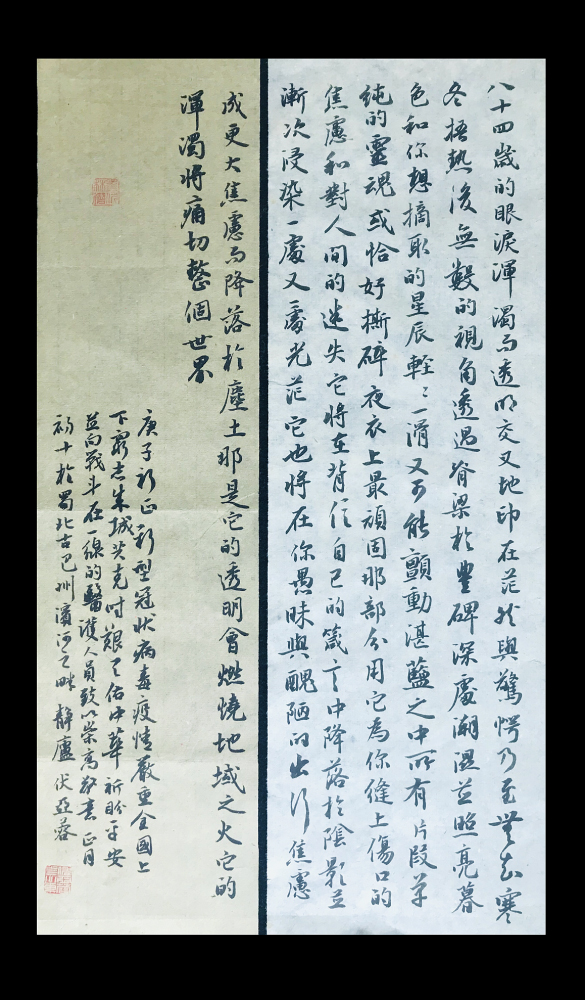 八十四歲的眼淚渾濁而透明交叉地印在茫然與驚愕乃至無知寒
冬捂熱後無數的視角透過脊梁於豐碑深處潮濕並照亮暮
色和你想摘取的星辰輕輕一滑又可能顫動湛藍之中所有片段單
純的靈魂或恰好撕碎夜衣上最頑固那部分用它為你縫上傷口的
焦慮和對人間的迷失它將在背信自己的箴言中降落於陰影並
漸次浸染一處又處光茫它也將在你愚昧與醜陋的出行焦慮
成更大焦慮而降落於塵土那是它的透明會燃燒地域之火它的
渾濁將痛切整個世界
庚子新正新型冠狀病毒疫情嚴重全國上
下眾志成城共克時艱天佑中華祈盼平安
並向戰斗在一線的醫護人員致以崇高敬意正月
初十於蜀北古巴州濱河之畔靜廬伏亞蓉